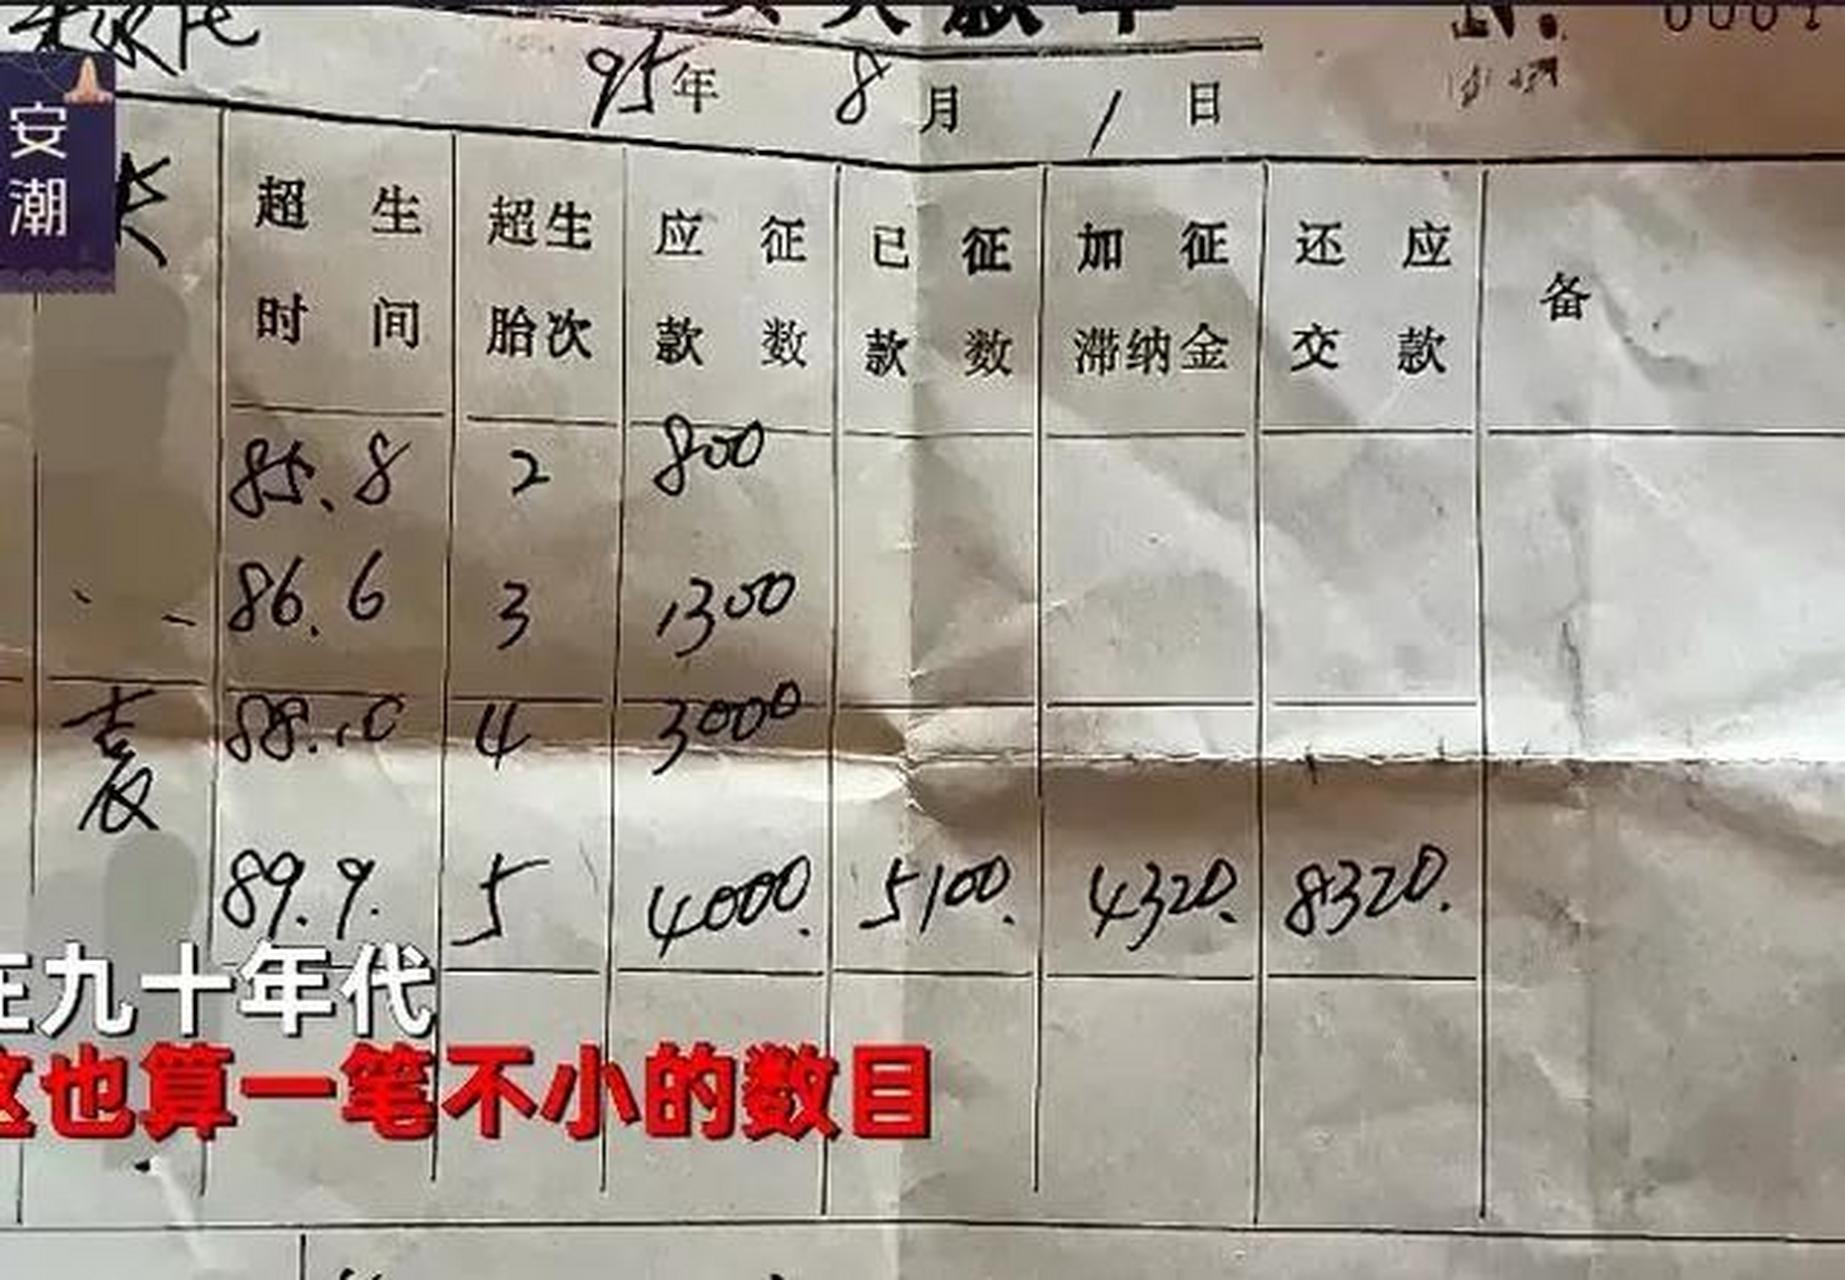 95年 8月 1日
安潮
超生时间 超生胎次 应征款数 已征款数 加征滞纳金 还应交款 备
85.8 2 800
86.6 3 1300
88.10 4 3000
89.9. 5 4000. 5100. 4320. 8320.
在九十年代
这也算一笔不小的数目